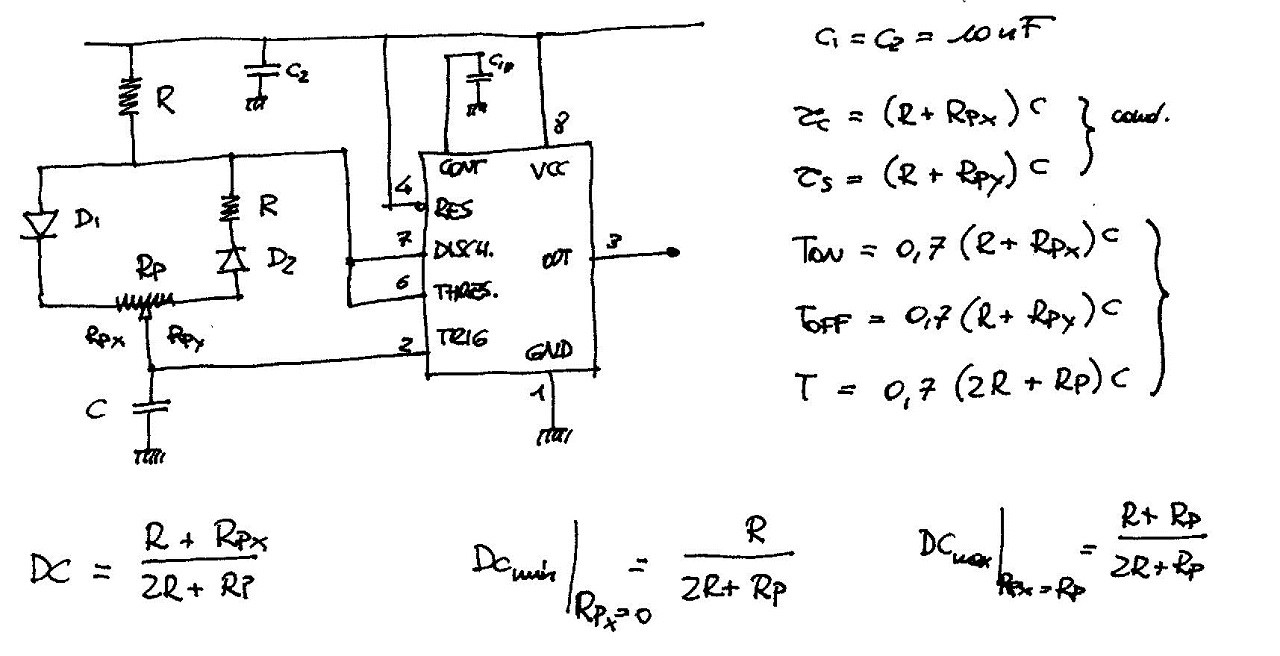 C₁ = C₂ = 10nF
R
C₂
C₁
8
CONT
VCC
4
RES
D₁
R
D₂
7
DISCH.
OUT
3
RP
6
THRES.
RPX
RPY
2
TRIG
GND
1
C
τc = (R + RPX) C
τs = (R + RPY) C
cond.
TON = 0,7 (R + RPX) C
TOFF = 0,7 (R + RPY) C
T = 0,7 (2R + RP) C
DC = R + RPX / 2R + RP
DCmin | RPX = 0 = R / 2R + RP
DCmax | RPX = RP = R + RP / 2R + RP